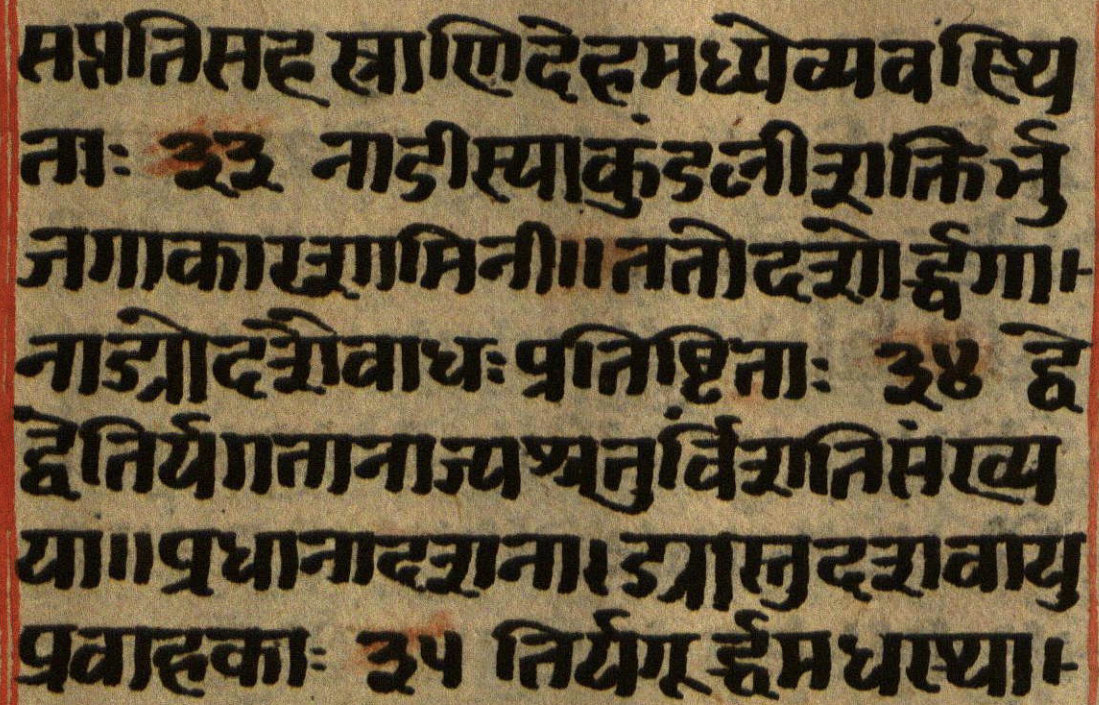 सप्ततिसहस्राणिदेहमध्येव्यवस्थि
ताः ३३ नाडीस्थाकुंडलीशक्तिर्भु
जगाकारशामिनी॥ततोदशोर्द्ध्वगा।
नाड्योदशैवाधःप्रतिष्ठिताः ३४ द्वे
द्वेतिर्यग्गतानाड्यश्चतुर्विंशतिसंख्य
या॥प्रधानादशना।ड्यास्तुदशवायु
प्रवाहकाः ३५ तिर्यगूर्द्ध्वमधस्था।